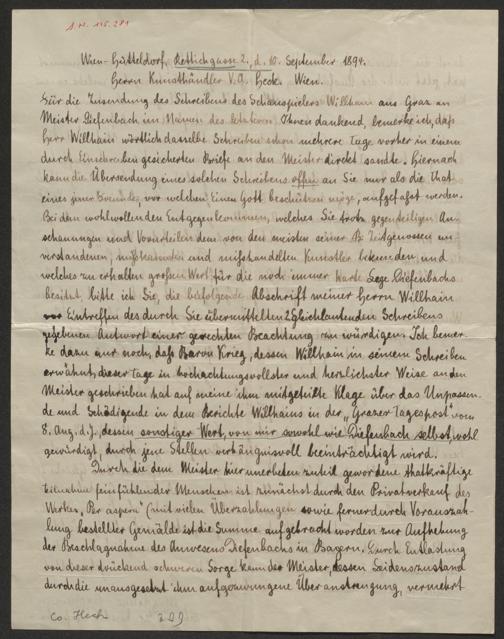 A.N. 115.281
Wien-Hütteldorf, Rettichgasse 2., d. 10. September 1894.
Herrn Kunsthändler V.A. Heck. Wien.
Für die Zusendung des Schreibens des Schauspielers Willhain aus Graz an
Meister Diefenbach im Namen des letzteren Ihnen dankend, bemerke ich, daß
Herr Willhain wörtlich dasselbe Schreiben schon mehrere Tage vorher in einem
durch Einschreiben gesicherten Briefe an den Meister direkt sandte. Hiernach
kann die Übersendung eines solchen Schreibens offen an Sie nur als die That
eines jener Freunde, vor welchen Einen Gott beschützen möge, aufgefaßt werden.
Bei dem wohlwollenden Entgegenkommen, welches Sie trotz gegenteiligen An-
schauungen und Vorurteilen dem von den meisten seiner Zeitgenossen un-
verstandenen, mißkannten und mißhandelten Künstler bekunden, und
welches zu erhalten großen Wert für die noch immer harte Lage Diefenbachs
besitzt, bitte ich Sie, die beifolgende Abschrift meiner Herrn Willhain
vor Eintreffen des durch Sie übermittelten 2. gleichlautenden Schreibens
gegebenen Antwort einer gerechten Beachtung zu würdigen. Ich bemer-
ke dazu nur noch, daß Baron Krieg, dessen Willhain in seinem Schreiben
erwähnt, dieser Tage in hochachtungsvollster und herzlichster Weise an den
Meister geschrieben hat auf meine ihm mitgeteilte Klage über das Unpassen-
de und Schädigende in dem Berichte Willhains in der „Grazer Tagespost" vom
8. Aug. d. J., dessen sonstiger Wert, von mir sowohl wie Diefenbach selbst, wohl
gewürdigt, durch jene Stellen verhängnisvoll beeinträchtigt wird.
Durch die dem Meister hier unerbeten zuteil gewordene thatkräftige
Teilnahme feinfühlender Menschen ist zunächst durch den Privatverkauf des
Werkes „Per aspera" (mit vielen Überzahlungen) sowie ferner durch Vorauszah-
lung bestellter Gemälde ist die Summe aufgebracht worden zur Aufhebung
der Beschlagnahme des Anwesens Diefenbachs in Bayern. Durch Entlastung
von dieser drückend schweren Sorge kann der Meister, dessen Leidenszustand
durch die unausgesetzt ihm aufgezwungene Überanstrengung, vermehrt
Co. Heck